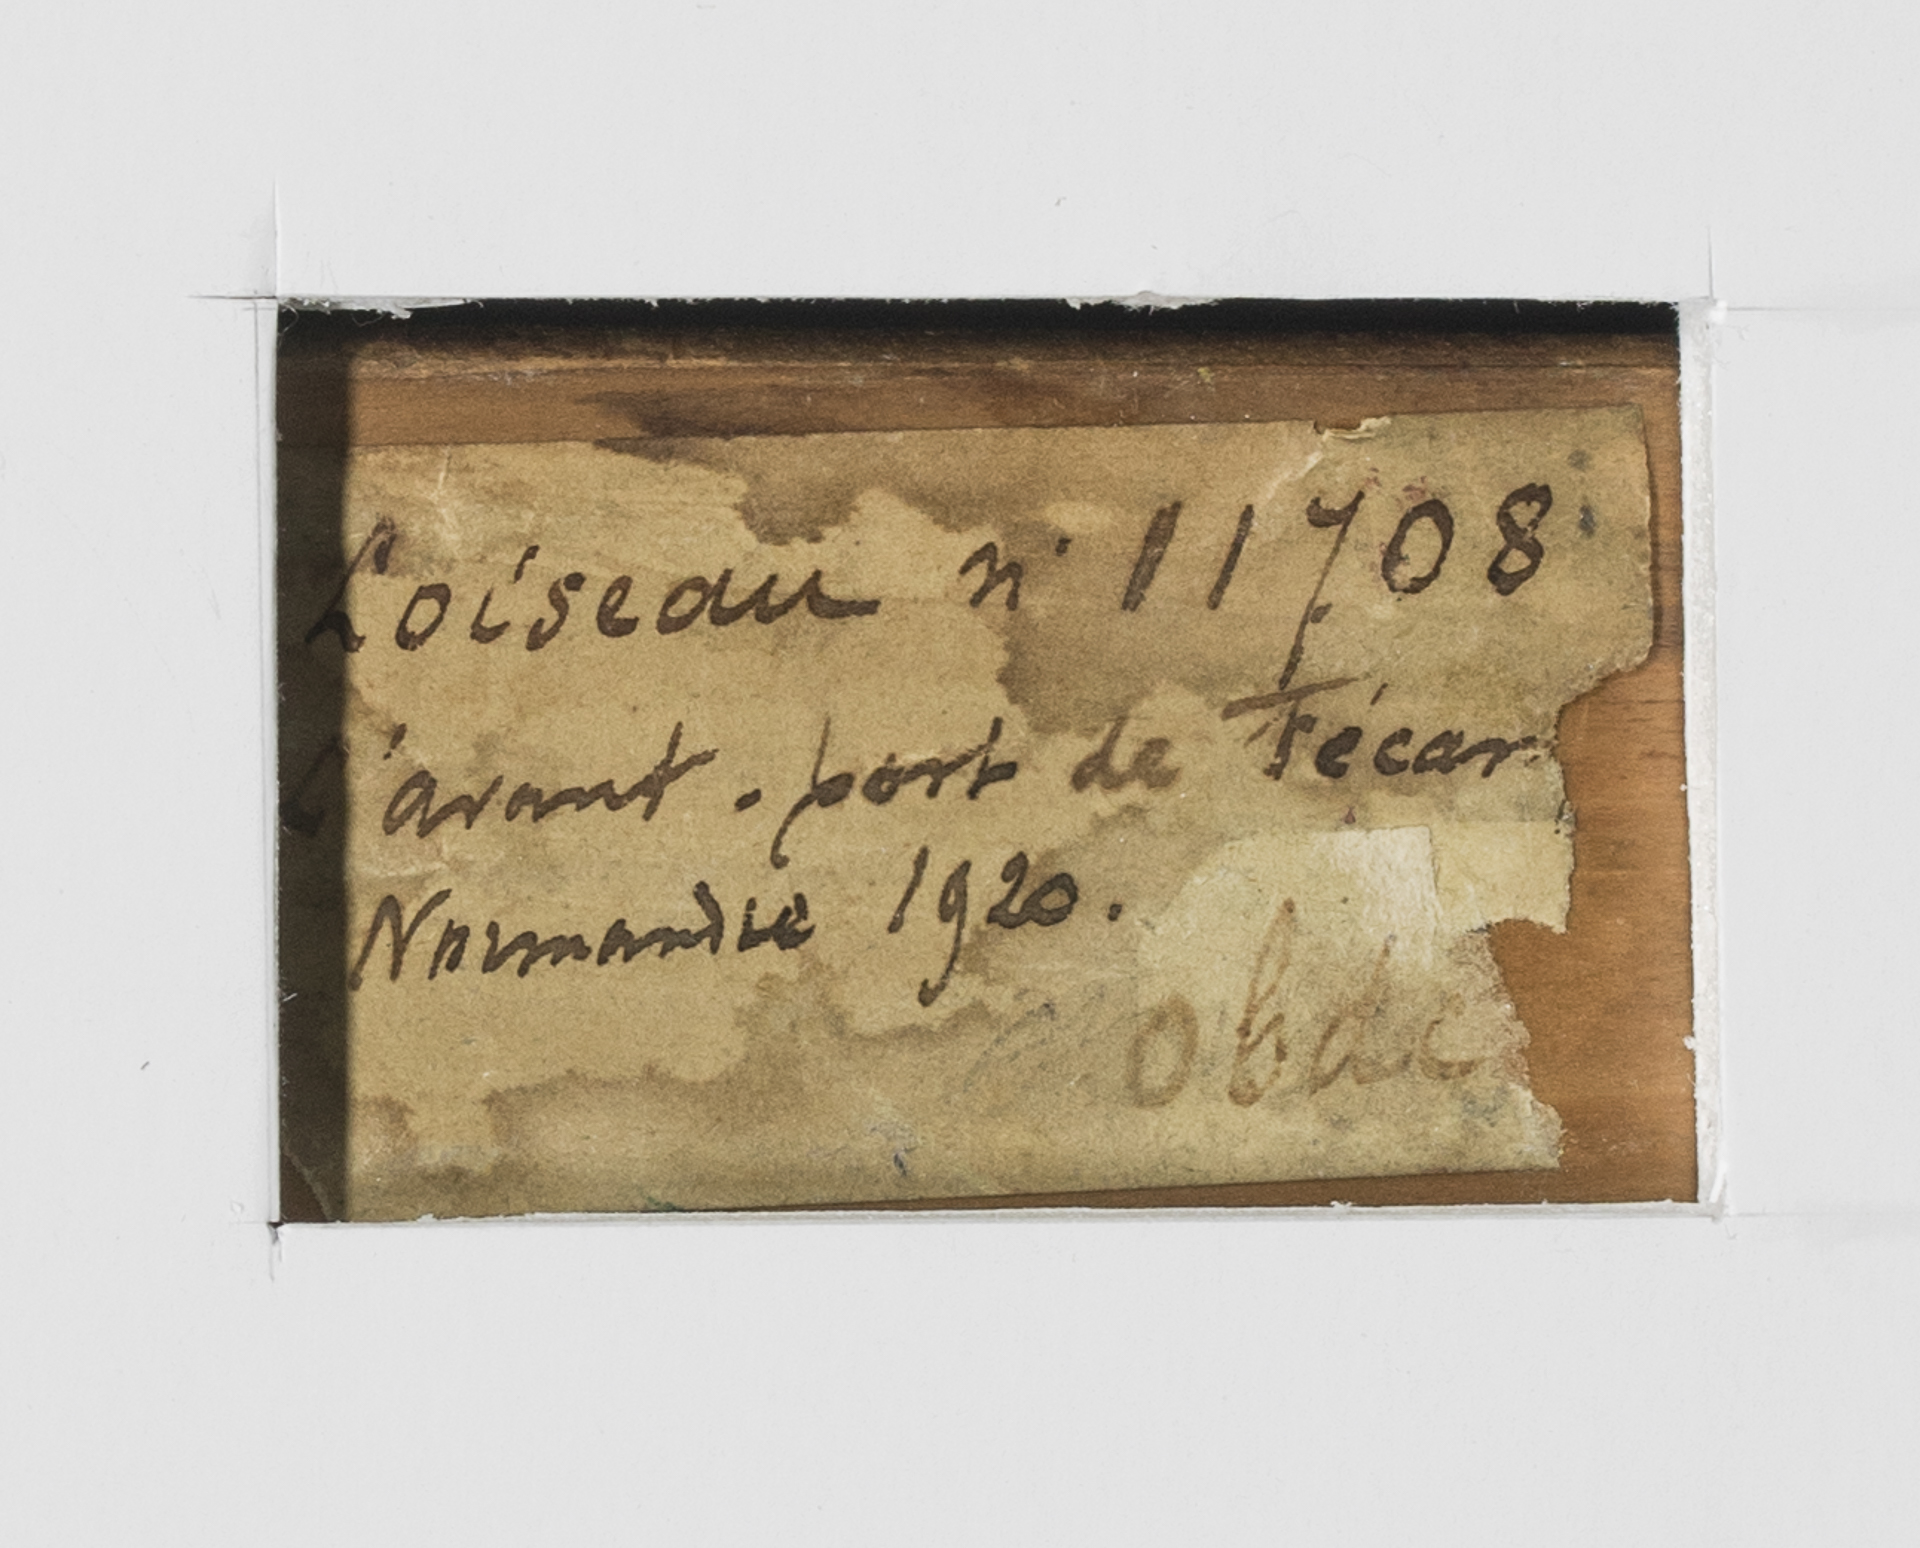 Loiseau n° 11708
L'avant-port de Fécam
Normandie 1920.
obdc